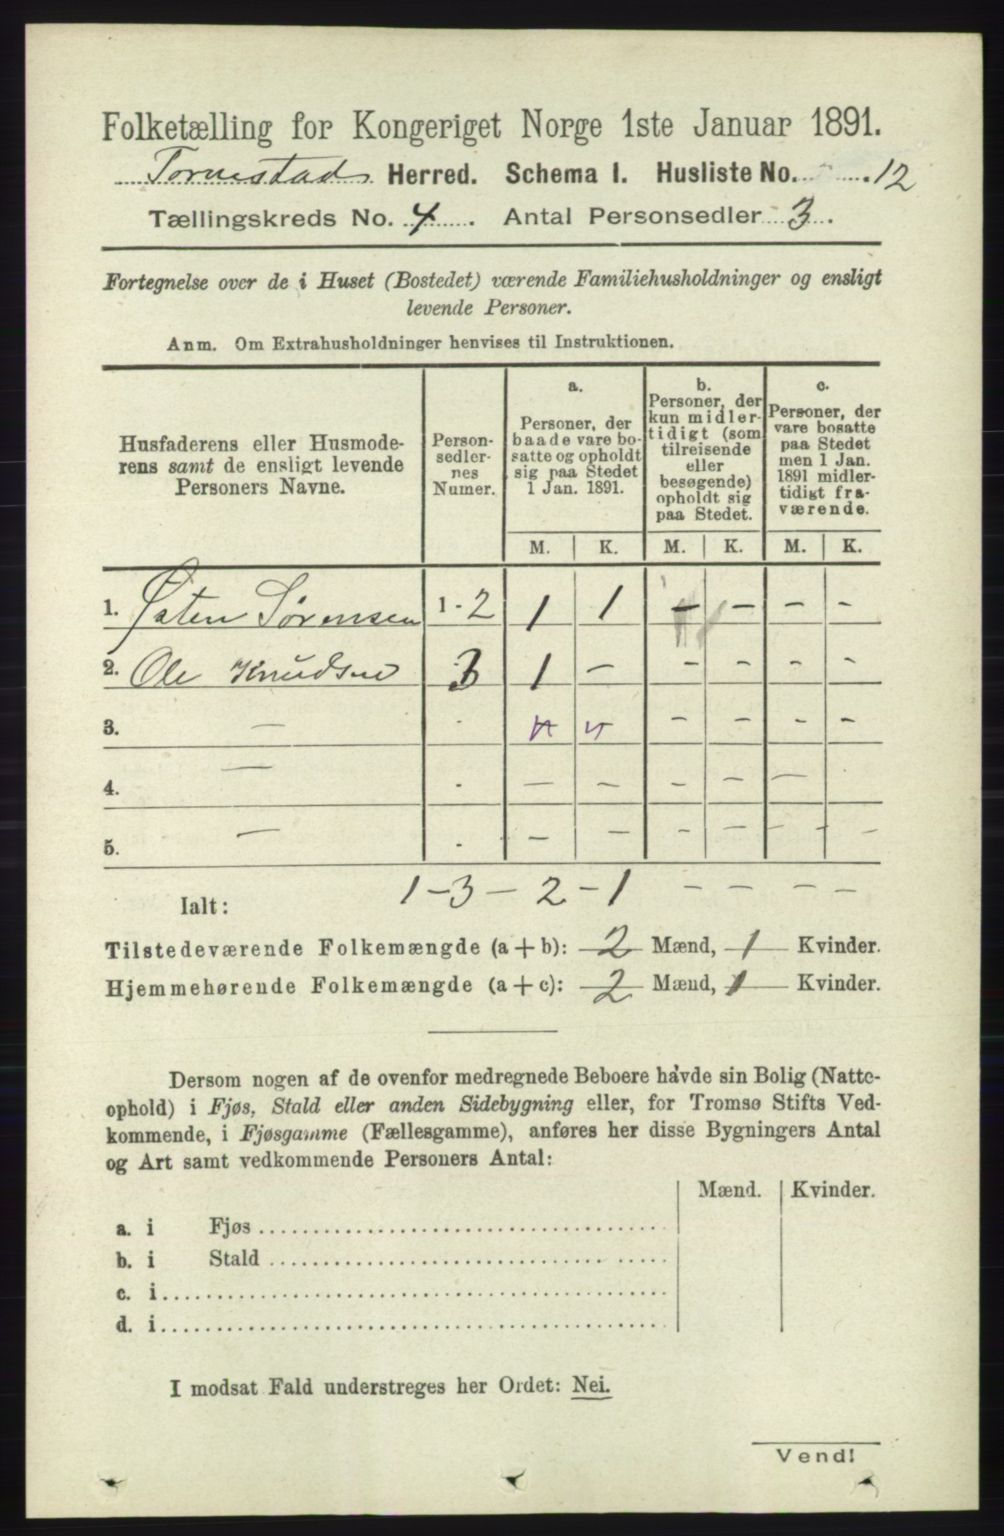 Folketælling for Kongeriget Norge 1ste Januar 1891.
Tornestad Herred. Schema I. Husliste No. 12
Tællingskreds No. 4. Antal Personsedler 3.
Fortegnelse over de i Huset (Bostedet) værende Familiehusholdninger og ensligt
levende Personer.
Anm. Om Extrahusholdninger henvises til Instruktionen.
Husfaderens eller Husmode-
rens samt de ensligt levende
Personers Navne.
Person-
sedler-
nes
Numer.
a.
Personer, der
baade vare bo-
satte og opholdt
sig paa Stedet
1 Jan. 1891.
b.
Personer, der
kun midler-
tidigt (som
tilreisende
eller
besøgende)
opholdt sig
paa Stedet.
c.
Personer, der
vare bosatte
paa Stedet
men 1 Jan.
1891 midler-
tidigt fra-
værende.
M. K. M. K. M. K.
1. Østen Sørensen 1-2 1 1 - - - -
2. Ole Knudsen 3 1 - - - - -
3. - - - - -
4. - - - - - - - -
5. - - - - - - - -
Ialt: 1-3-2-1 - - - -
Tilstedeværende Folkemængde (a+b): 2 Mænd, 1 Kvinder.
Hjemmehørende Folkemængde (a+c): 2 Mænd, 1 Kvinder.
Dersom nogen af de ovenfor medregnede Beboere havde sin Bolig (Natte-
ophold) i Fjøs, Stald eller anden Sidebygning eller, for Tromsø Stifts Ved-
kommende, i Fjøsgamme (Fællesgamme), anføres her disse Bygningers Antal
og Art samt vedkommende Personers Antal:
Mænd. Kvinder.
a. i Fjøs
b. i Stald
c. i
d. i
I modsat Fald understreges her Ordet: Nei.
Vend!